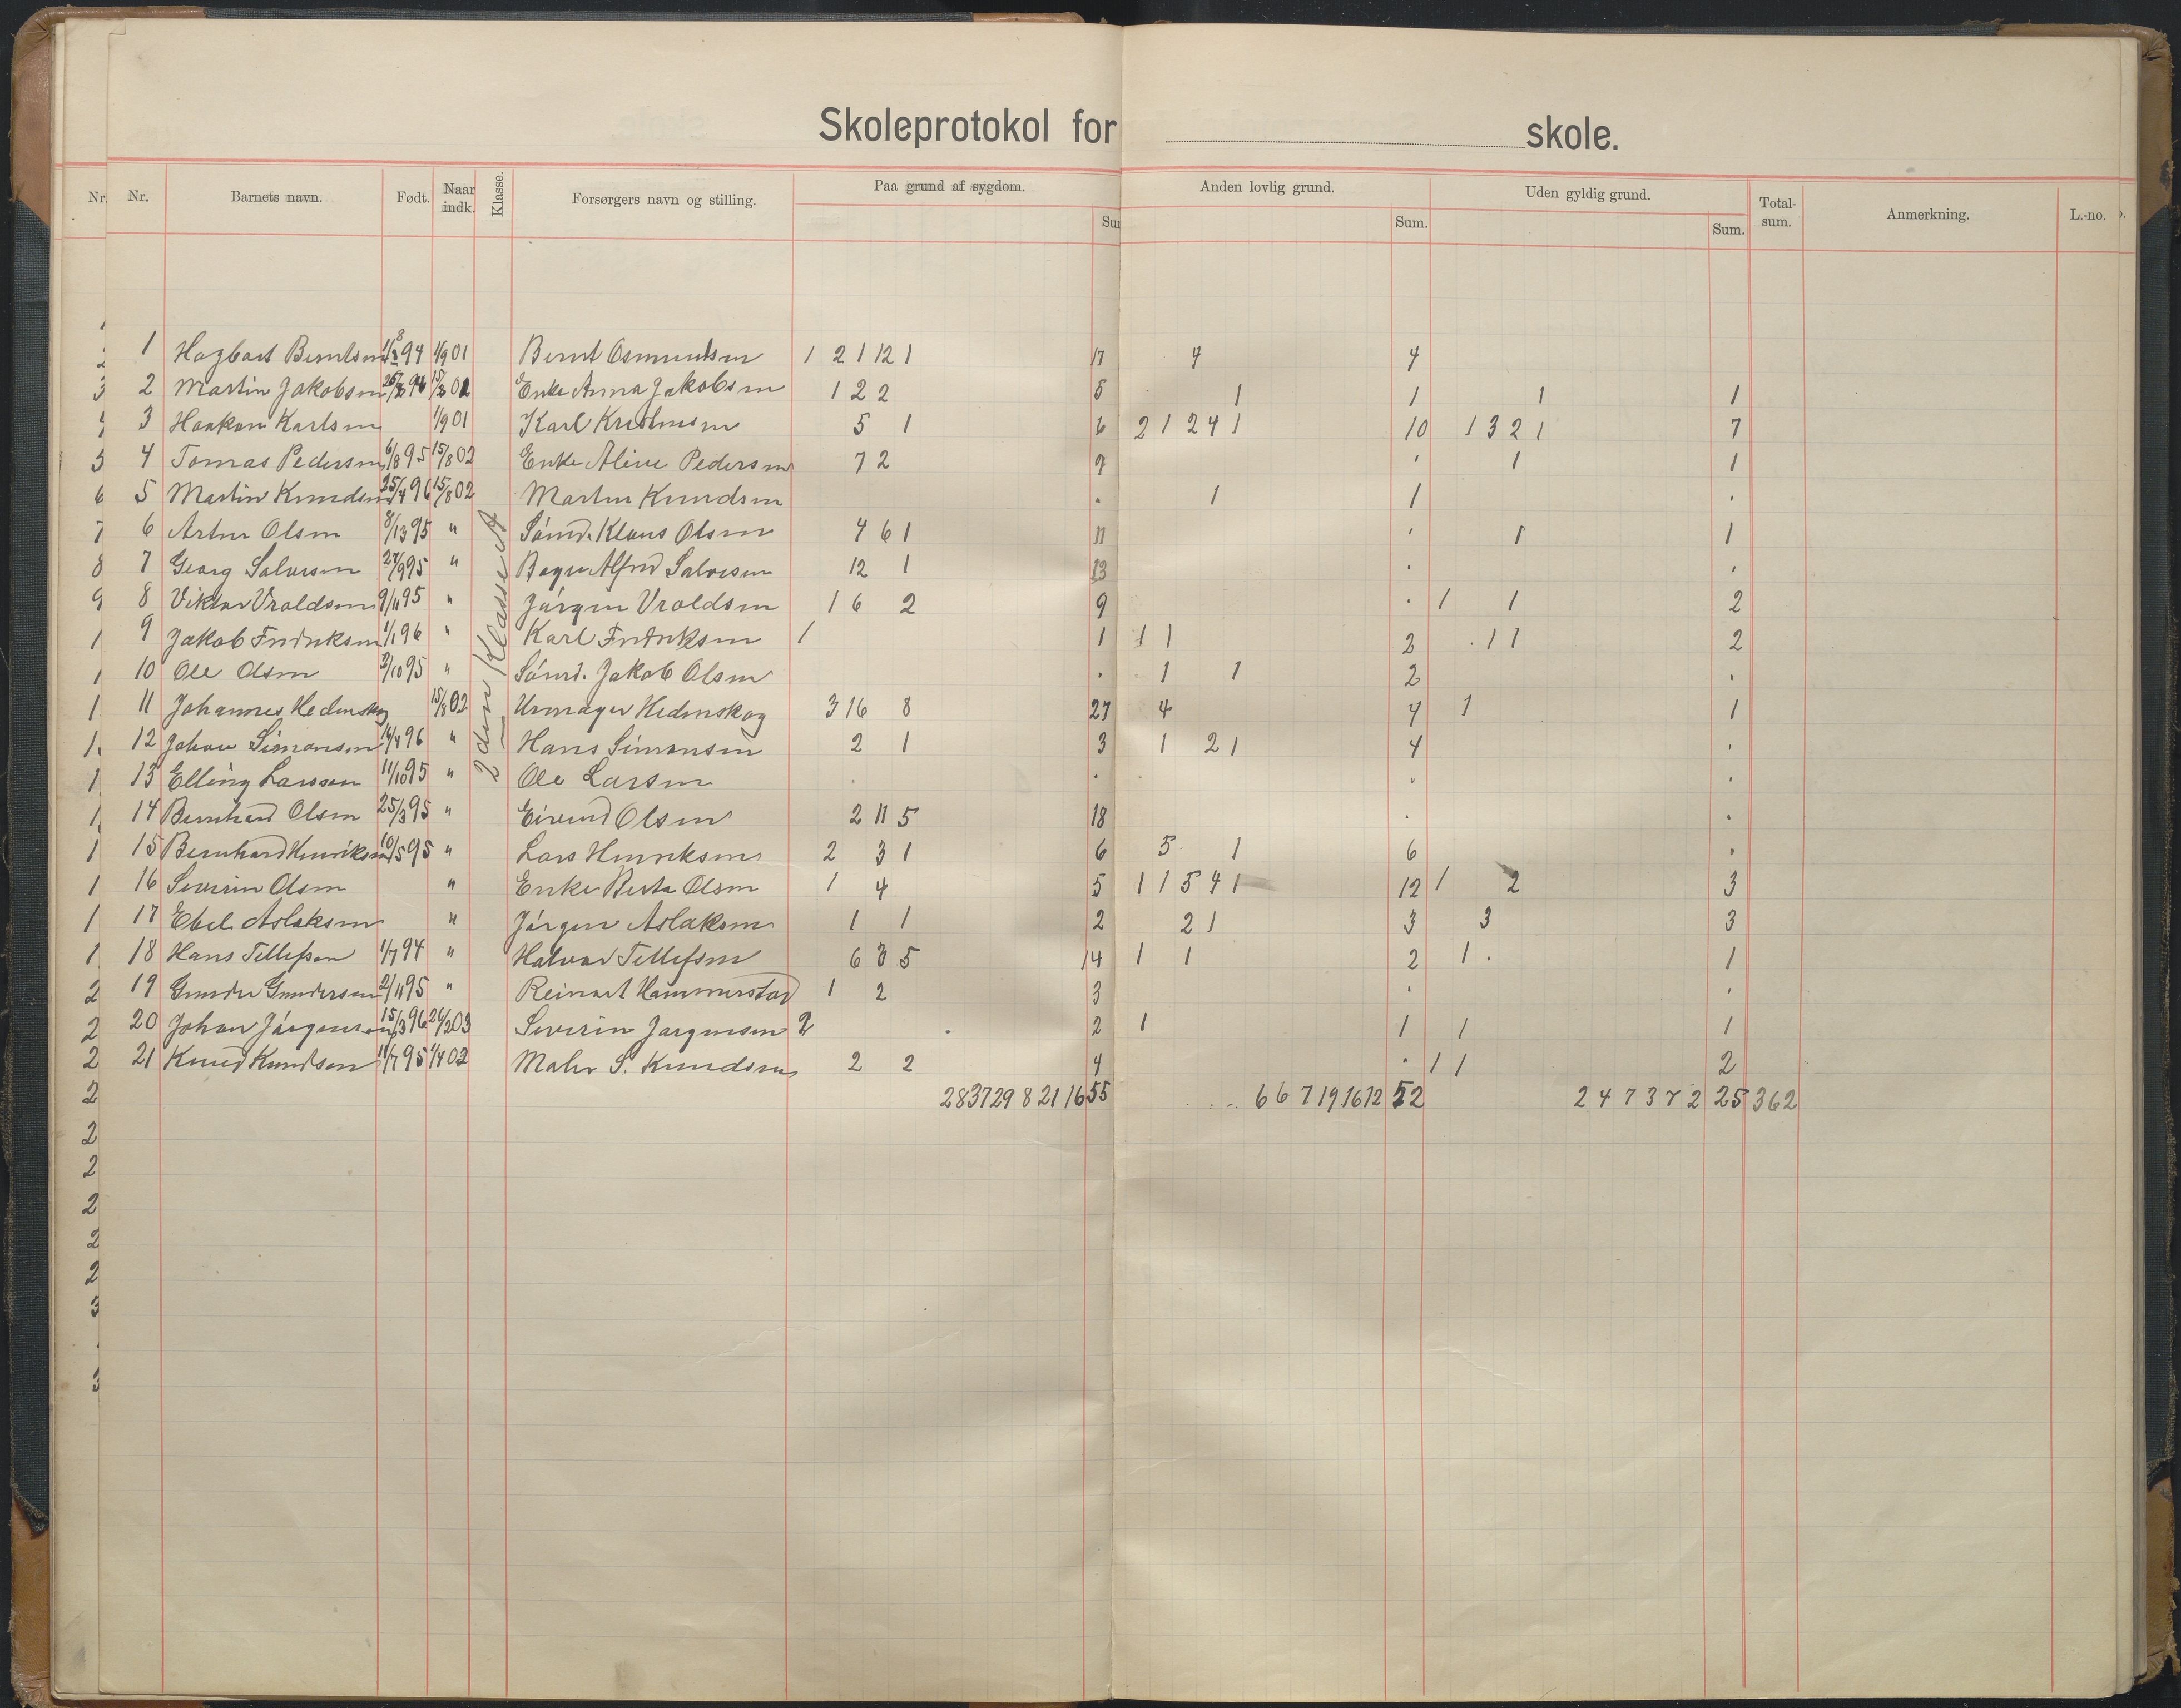 Skoleprotokol for skole.
Nr. Nr. Barnets navn. Født. Naar indk. Klasse. Forsørgers navn og stilling. Paa grund af sygdom. Sum Anden lovlig grund. Sum. Uden gyldig grund. Sum. Total-sum. Anmerkning. L.-no.
2den Klasse A
1 Hagbart Berntsen 94 1/9 01 Bernt Osmundsen 1 2 1 12 1 17 4 4
2 Martin Jakobsen Enke Anna Jakobsen 1 2 2 5 1 1 1 1
3 Haakon Karlsen 1/9 01 Karl Kristensen 5 1 6 2 1 2 4 1 10 1 3 2 1 7
4 Tomas Pedersen 6/8 95 15/8 02 Enke Aline Pedersen 7 2 9 . 1 1
5 Martin Knudsen 25/4 96 15/8 02 Martin Knudsen . 1 1 .
6 Artur Olsen 8/13 95 " Sømd. Klaus Olsen 4 6 1 11 . 1 1
7 Georg Salvesen 27/9 95 " Bager Alfred Salvesen 12 1 13 . .
8 Viktor Vroldsen 9/11 95 " Jørgen Vroldsen 1 6 2 9 . 1 1 2
9 Jakob Fredriksen 1/1 96 " Karl Fredriksen 1 1 1 1 2 . 1 1 2
10 Ole Olsen 2/10 95 " Sømd. Jakob Olsen . 1 1 2 .
11 Johannes Hedenskog 15/8 02 Urmager Hedenskog 3 16 8 27 4 4 1 1
12 Johan Simonsen 16/4 96 " Hans Simonsen 2 1 3 1 2 1 4 .
13 Elling Larssen 11/10 95 " Ole Larsen . . . .
14 Bernhard Olsen 25/3 95 " Eivind Olsen 2 11 5 18 . .
15 Bernhard Henriksen 10/5 95 " Lars Henriksen 2 3 1 6 5 1 6 .
16 Severin Olsen " Enke Berta Olsen 1 4 5 1 1 5 4 1 12 1 2 3
17 Ebel Aslaksen " Jørgen Aslaksen 1 1 2 2 1 3 3 3
18 Hans Tellefsen 1/7 94 " Halvor Tellefsen 6 3 5 14 1 1 2 1 . 1
19 Gunder Gundersen 2/11 95 " Reinart Hammerstad 1 2 3 . .
20 Johan Jørgensen 15/3 96 26/2 03 Severin Jørgensen 2 2 1 1 1 1
21 Knud Knudsen 11/7 95 1/4 02 Maler S. Knudsen 2 2 4 . 1 1 2
28 37 29 8 21 16 55 6 6 7 19 16 12 52 2 4 7 3 7 2 25 362